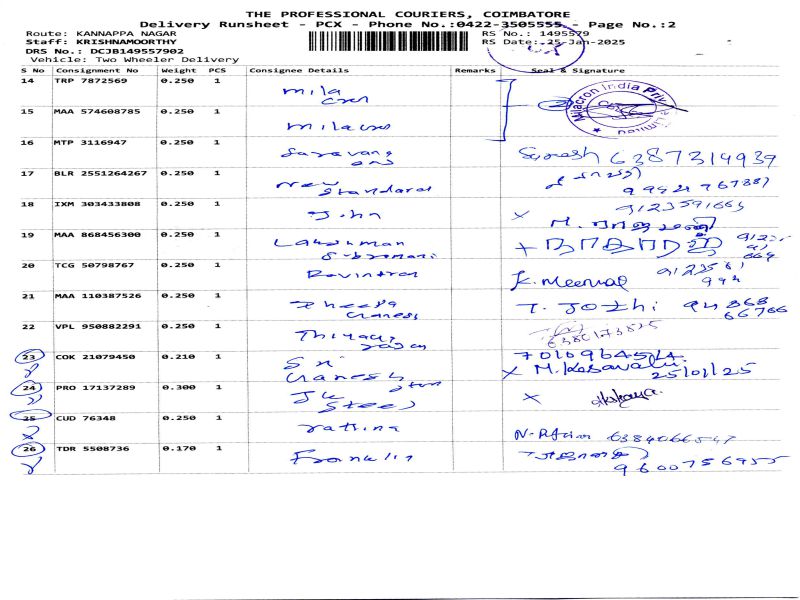 THE PROFESSIONAL COURIERS, COIMBATORE
Delivery Runsheet - PCX - Phone No.:0422-3505555 - Page No.:2
Route: KANNAPPA NAGAR RS No.: 1495579
Staff: KRISHNAMOORTHY RS Date: 25-Jan-2025
DRS No.: DCJB149557902
Vehicle: Two Wheeler Delivery
S No Consignment No Weight PCS Consignee Details Remarks Seal & Signature
14 TRP 7872569 0.250 1 mila cron
Milacron India Priv
15 MAA 574608785 0.250 1 milacron
16 MTP 3116947 0.250 1 Saravana Suresh 6387314939
17 BLR 2551264267 0.250 1 New Standard
18 IXM 303433808 0.250 1 John X
19 MAA 868456300 0.250 1 Lakshman Subramani
20 TCG 50798767 0.250 1 Ravintran K. Meenal
21 MAA 110387526 0.250 1 Ganesh T. Jothi 94868 66766
22 VPL 950882291 0.250 1 Thiyaga rajan 6380173825
23 COK 21079450 0.210 1 Sri Ganesh X M. Kesavalu 25/01/25
24 PRO 17137289 0.300 1 JK Steel X Akshaya
25 CUD 76348 0.250 1 rathina 6384066547
26 TDR 5508736 0.170 1 Franklin 9600756955